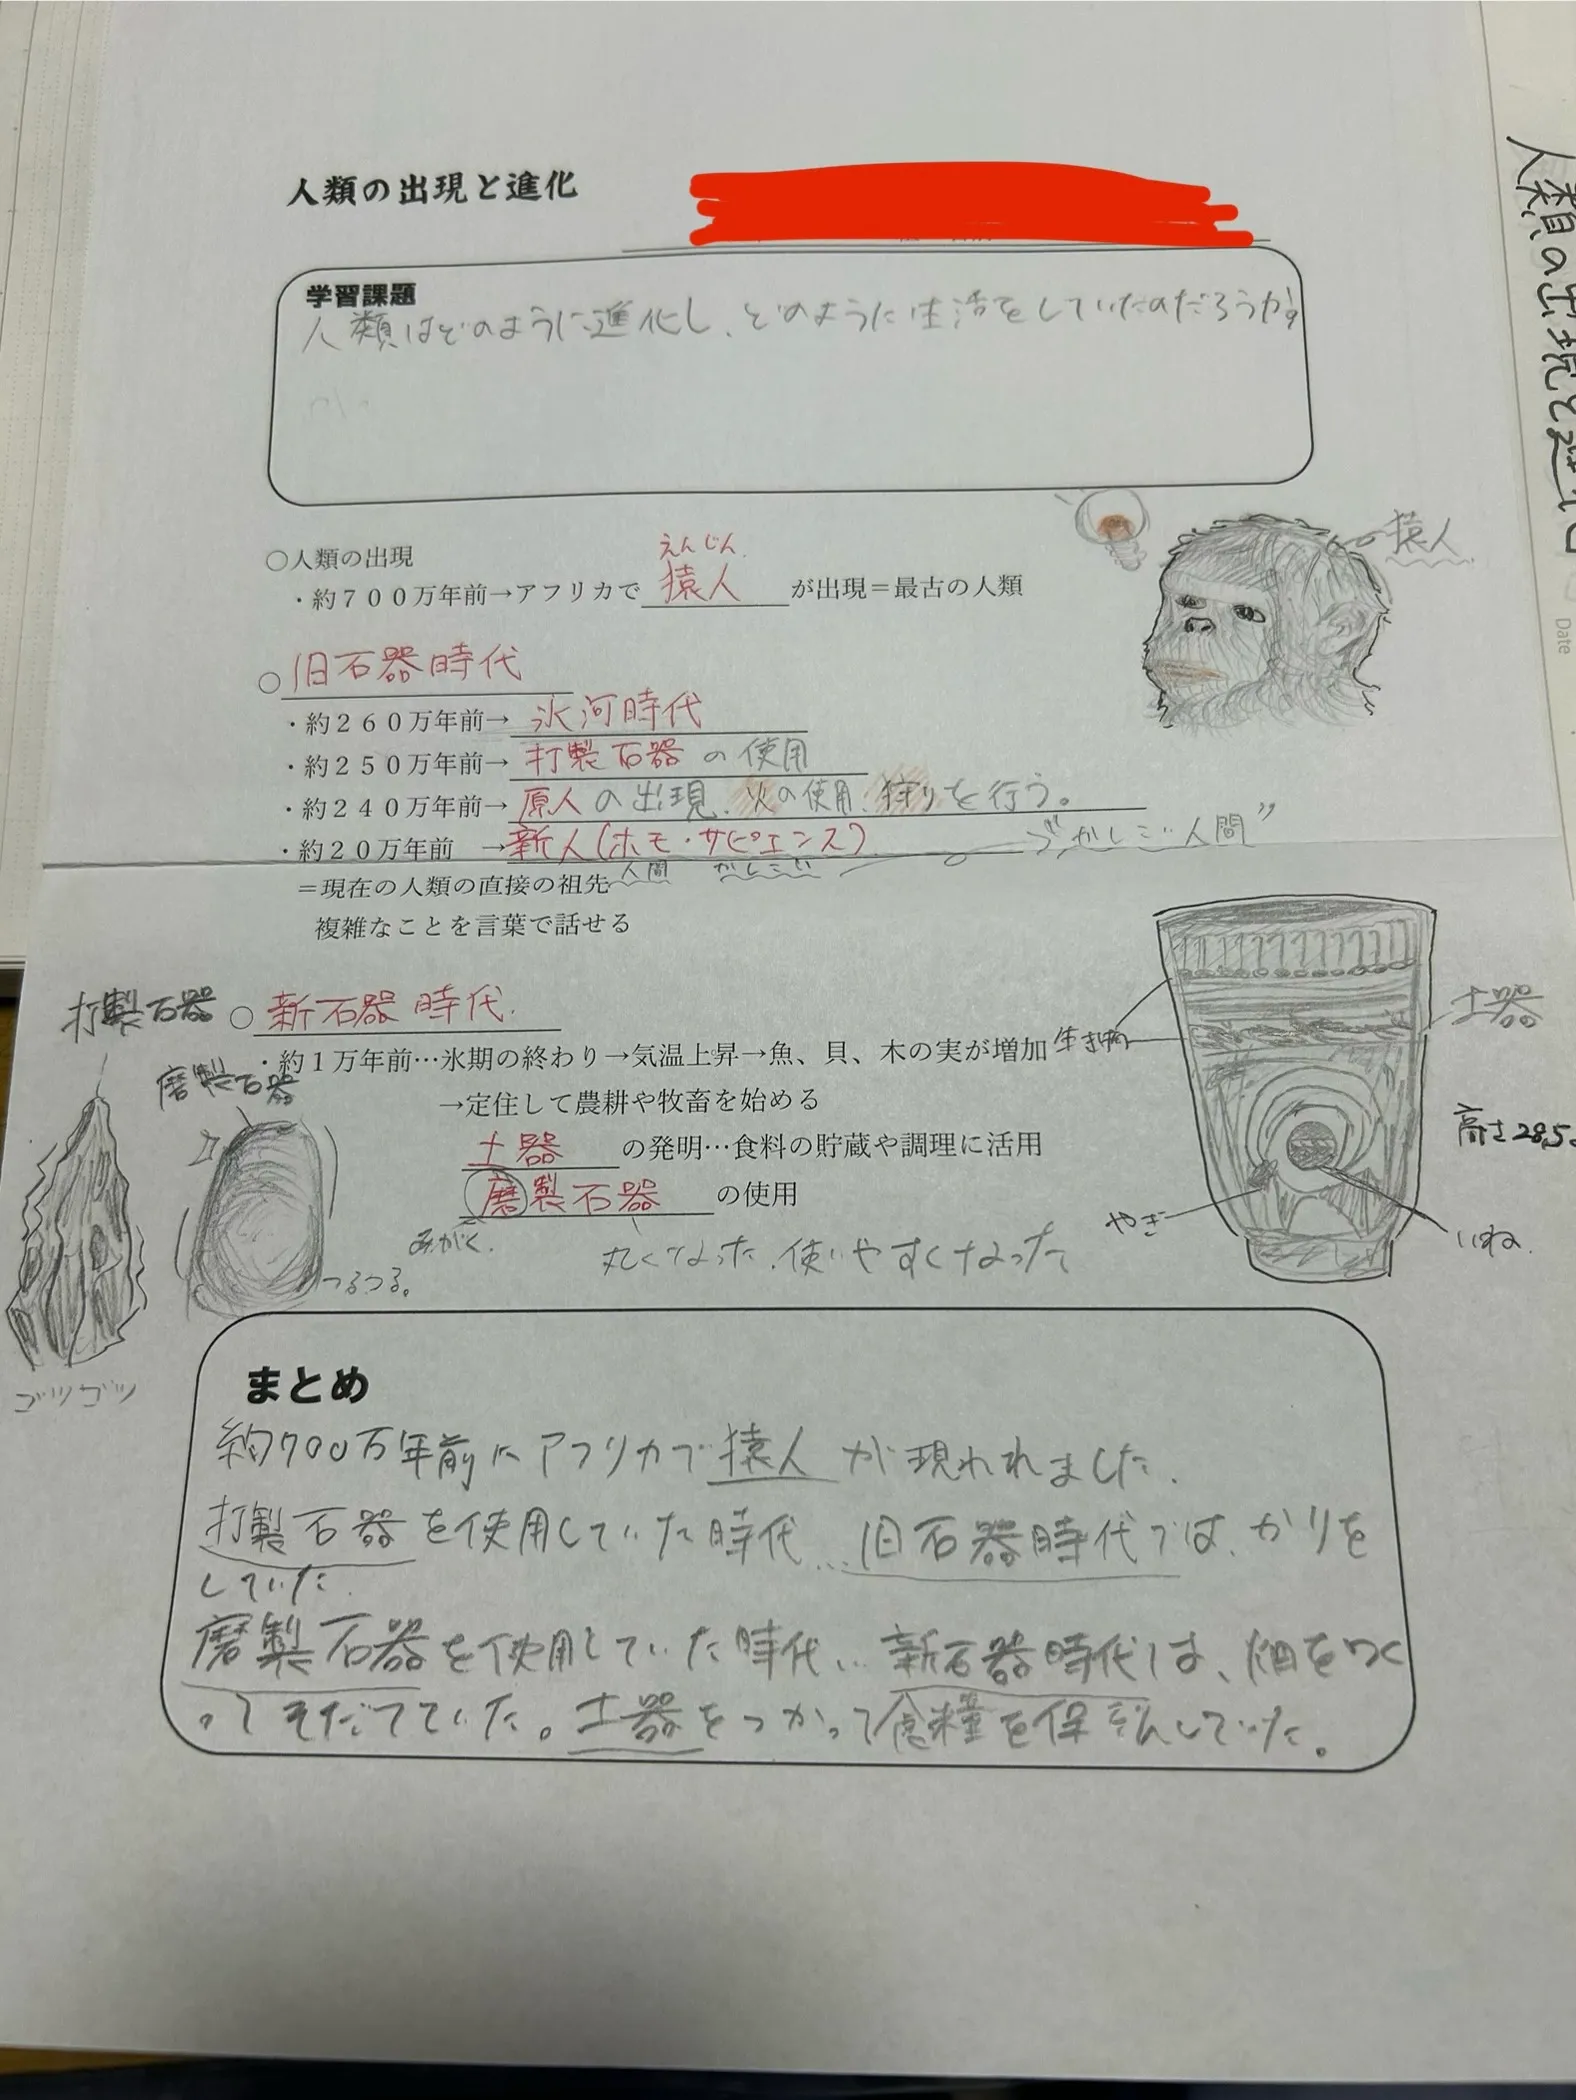 人類の出現と進化
人類の出現と進化
学習課題
人類はどのように進化し、どのように生活をしていたのだろうか
○人類の出現
えんじん
・約700万年前→アフリカで 猿人 が出現＝最古の人類
猿人
○旧石器時代
・約260万年前→ 氷河時代
・約250万年前→打製石器の使用
・約240万年前→原人の出現、火の使用、狩りを行う。
・約20万年前 →新人(ホモ・サピエンス) “かしこい人間”
人間 かしこい
＝現在の人類の直接の祖先
複雑なことを言葉で話せる
Date
打製石器
○新石器時代
・約1万年前…氷期の終わり→気温上昇→魚、貝、木の実が増加
磨製石器
→定住して農耕や牧畜を始める
土器 の発明…食料の貯蔵や調理に活用
磨製石器 の使用
みがく.
丸くなった.使いやすくなった
つるつる。
ゴツゴツ
土器
高さ28,5
やぎ
いね
まとめ
約700万年前にアフリカで猿人が現れれました.
打製石器を使用していた時代…旧石器時代では、かりを
していた.
磨製石器を使用していた時代…新石器時代は、畑をつく
ってそだてていた。土器をつかって食糧を保存していた。